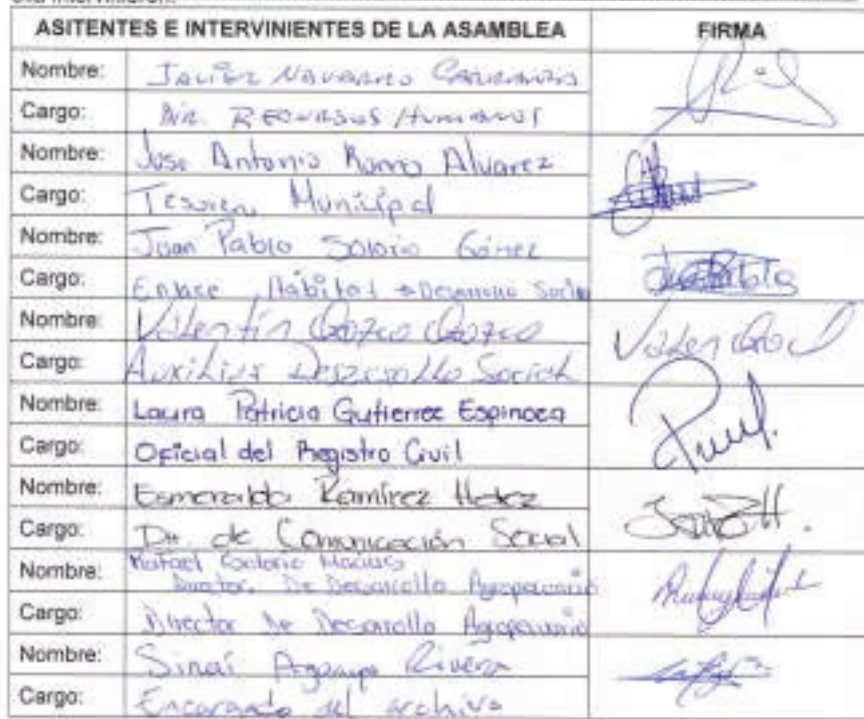 ASITENTES E INTERVINIENTES DE LA ASAMBLEA FIRMA
Nombre: Javier Navarro
Cargo: Dir. Recursos Humanos
Nombre: Jose Antonio Romo Alvarez
Cargo: Tesorero Municipal
Nombre: Juan Pablo Solorio Gómez
Cargo: Enlace Hábitat Desarrollo Social
Nombre: Valentín Orozco Orozco
Cargo: Auxiliar Desarrollo Social
Nombre: Laura Patricia Gutierrez Espinoza
Cargo: Oficial del Registro Civil
Nombre: Esmeralda Ramírez Hdez
Cargo: Dir. de Comunicación Social
Nombre: Rafael Macias
Director De Desarrollo Agropecuario
Cargo: Director De Desarrollo Agropecuario
Nombre: Sinaí Rivera
Cargo: Encargado del archivo